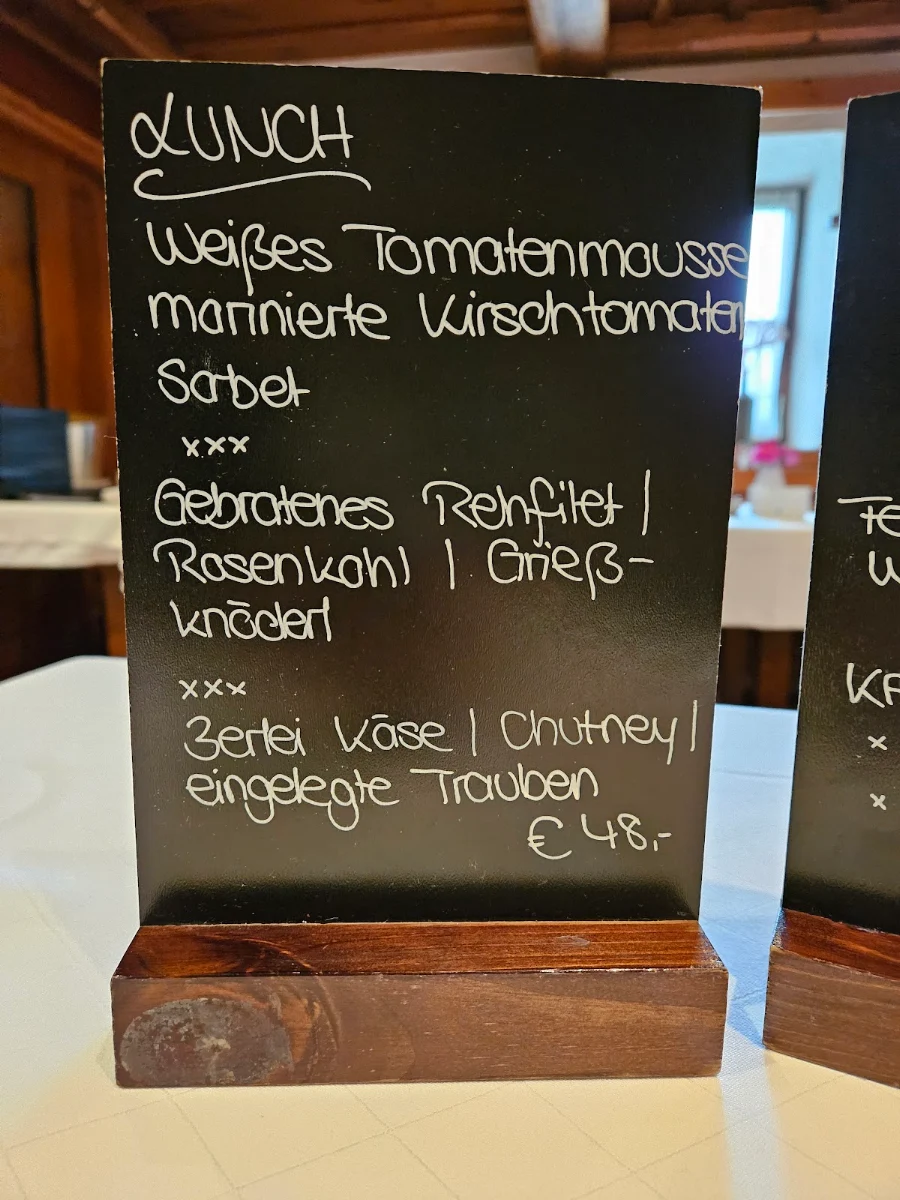 LUNCH
Weißes Tomatenmousse
marinierte Kirschtomaten
Sorbet
xxx
Gebratenes Rehfilet |
Rosenkohl | Grieß-
knöderl
xxx
3erlei Käse | Chutney |
eingelegte Trauben
€ 48,-
Te
W
KA
x
x